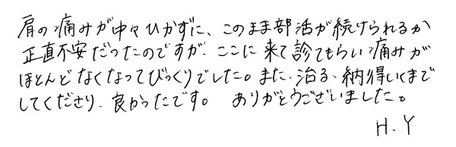 肩の痛みが中々ひかずに、このまま部活が続けられるか
正直不安だったのですが、ここに来て診てもらい痛みが
ほとんどなくなってびっくりでした。また、治る、納得いくまで
してくださり、良かったです。 ありがとうございました。
H.Y